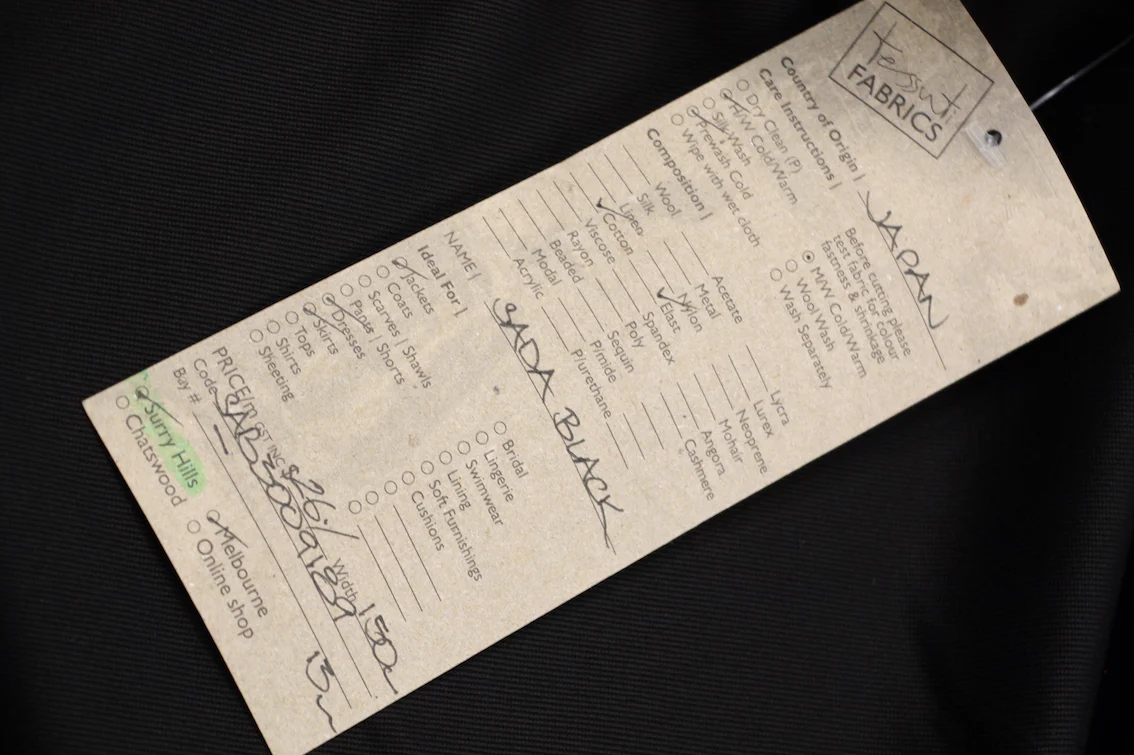 tessuti
FABRICS
Country of Origin | JAPAN
Care Instructions |
Dry Clean (P)
H/W Cold/Warm
Silk Wash
Prewash Cold
Wipe with wet cloth
Before cutting please
test fabric for colour
fastness & shrinkage
M/W Cold/Warm
Wool Wash
Wash Separately
Composition |
Wool
Silk
Linen
Cotton
Viscose
Rayon
Beaded
Modal
Acrylic
Acetate
Metal
Nylon
Elast
Spandex
Poly
Sequin
P/mide
P/urethane
Lycra
Lurex
Neoprene
Mohair
Angora
Cashmere
NAME | SADA BLACK
Ideal For |
Jackets
Coats
Scarves | Shawls
Pants | Shorts
Dresses
Skirts
Tops
Shirts
Sheeting
Bridal
Lingerie
Swimwear
Lining
Soft Furnishings
Cushions
PRICE/m GST INC $26./ Width 150c
Code SAD3009189
Bay # 13m
Surry Hills
Chatswood
Melbourne
Online shop